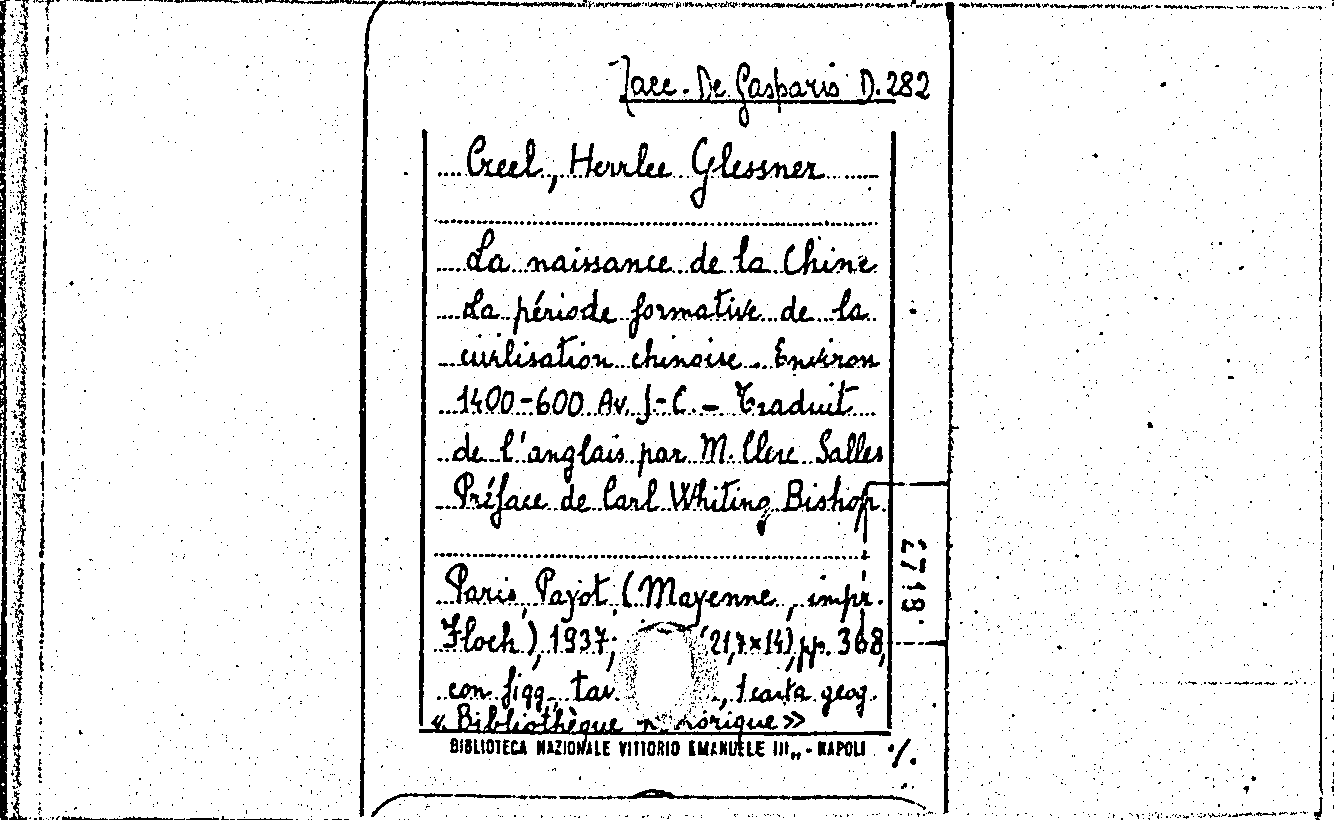 Race. De Gasparis D.282
Creel, Herrlee Glessner
La naissance de la Chine
La période formative de la
civilisation chinoise. Environ
1400-600 Av. J-C. - Traduit
de l'anglais par M. Clerc Salles
Préface de Carl Whiting Bishop.
Paris, Payot, (Mayenne, impr.
Floch), 1937; (21,7x14), pp. 368,
con figg. tav. , 1 carta geog.
« Bibliothèque
BIBLIOTECA NAZIONALE VITTORIO EMANUELE III„ - NAPOLI
·/.